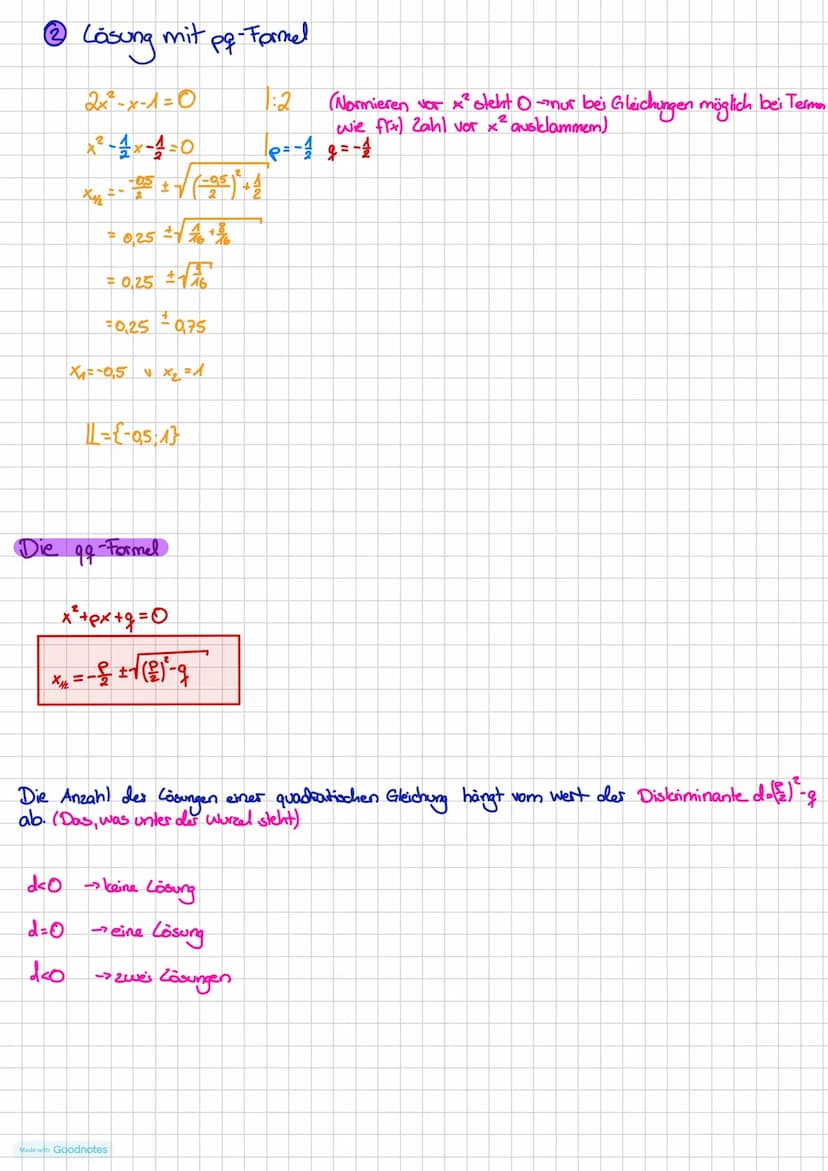 ② Lösung mit pq-Formel
2x² - x - 1 = 0 |:2 (Normieren vor x² steht 0 → nur bei Gleichungen möglich bei Termen
wie f(x) Zahl vor x² ausklammern)
x² - 1/2 x - 1/2 = 0 | p = -1/2 q = -1/2
x₁/₂ = - -0,5/2 ± √((-0,5/2)² + 1/2)
= 0,25 ± √(1/16 + 8/16)
= 0,25 ± √(9/16)
= 0,25 ± 0,75
x₁ = -0,5 ∨ x₂ = 1
𝕃 = {-0,5; 1}
Die qq-Formel
x² + px + q = 0
x₁/₂ = - p/2 ± √((p/2)² - q)
Die Anzahl der Lösungen einer quadratischen Gleichung hängt vom Wert der Diskriminante d=(p/2)² - q
ab. (Das, was unter der Wurzel steht)
d<0 → keine Lösung
d=0 → eine Lösung
d<0 → zwei Lösungen
Made with Goodnotes